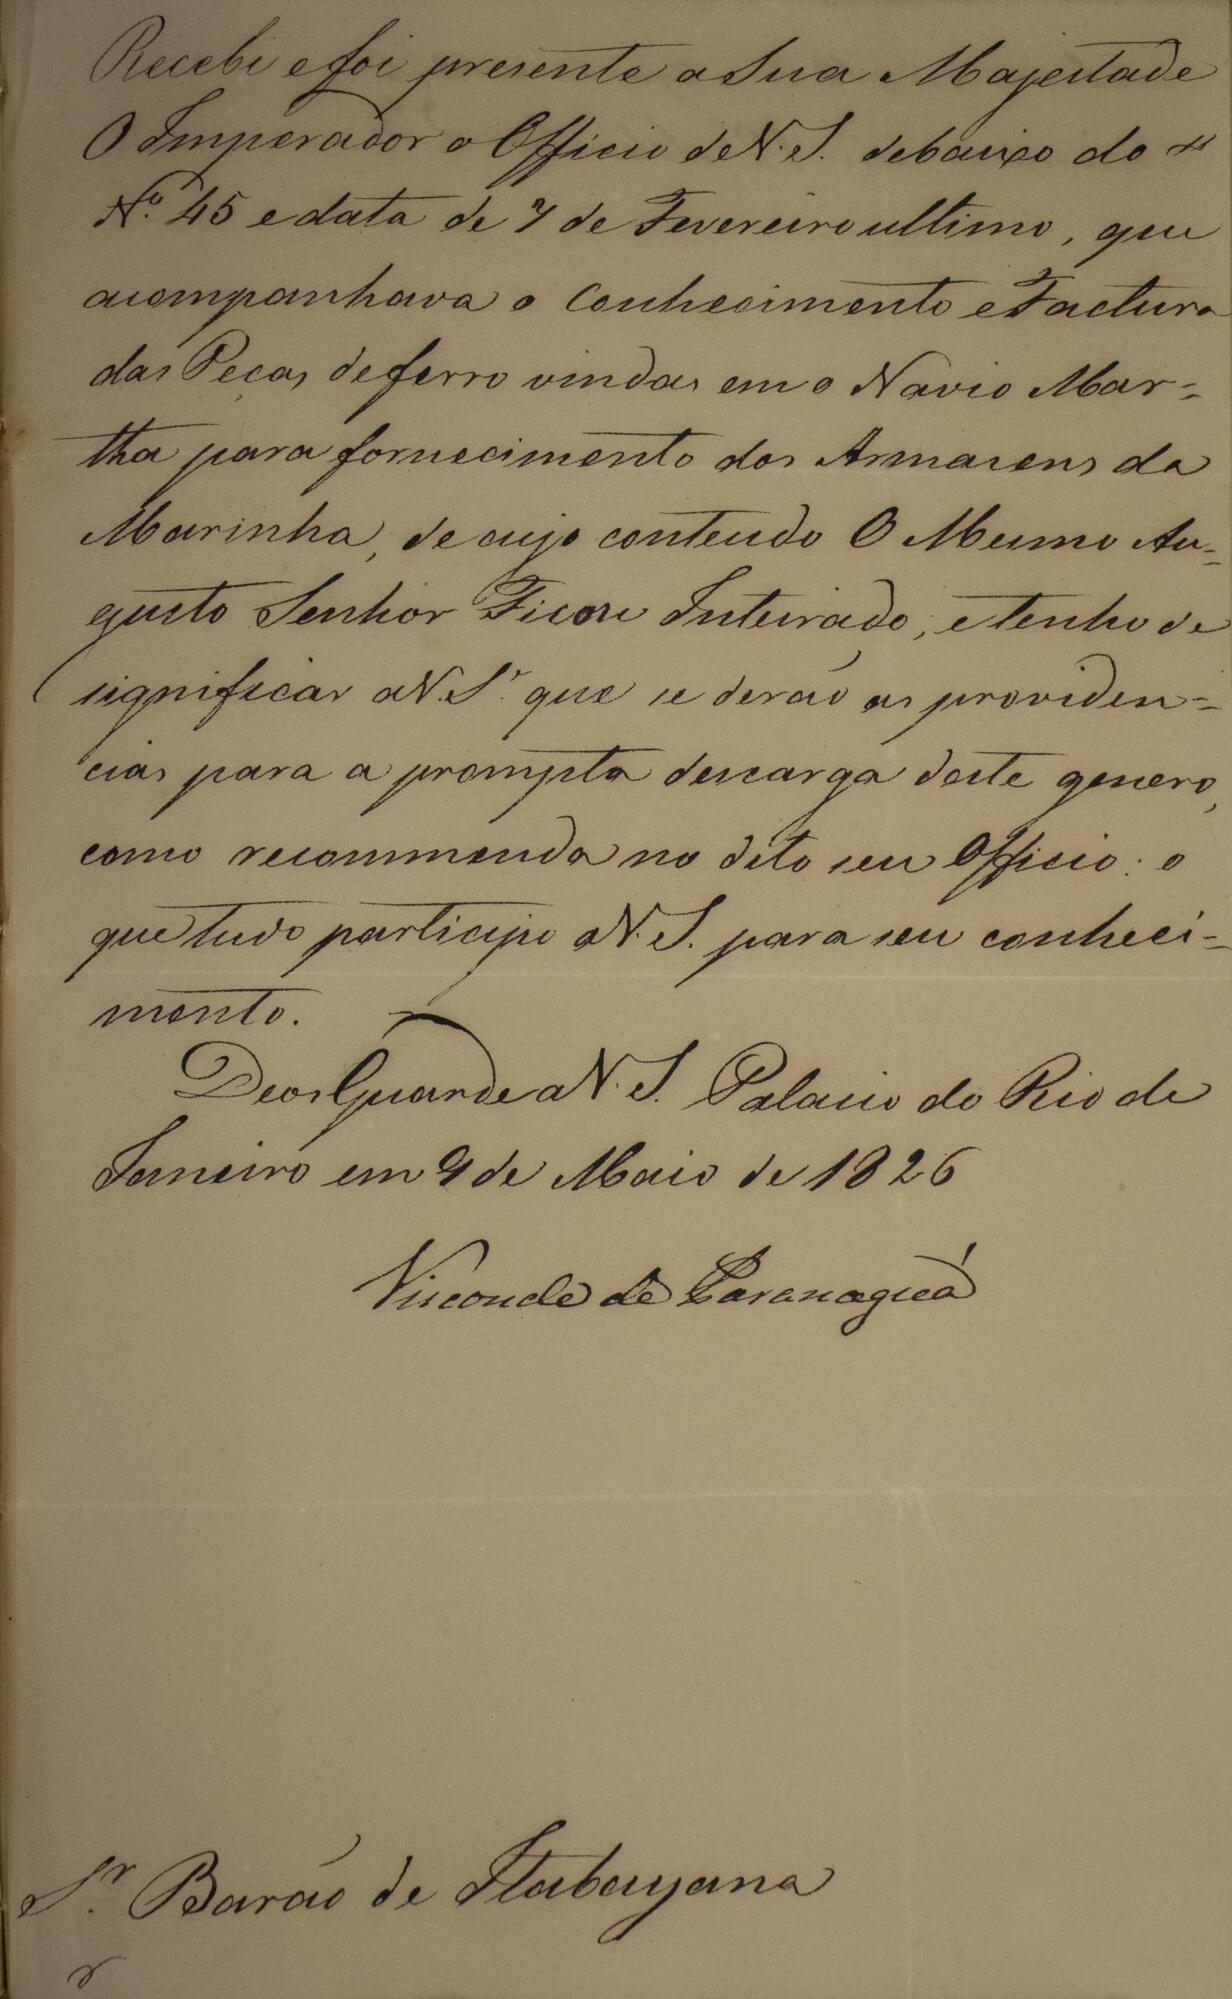 Recebi e foi presente a Sua Majestade
O Imperador o Officio de V. S. debaixo do
Nº. 45 e data de 7 de Fevereiro ultimo, que
acompanhava o Conhecimento e Factura
das Peças de ferro vindas em o Navio Mar-
tha para fornecimento dos Armasens da
Marinha, de cujo contendo O Mesmo Au-
gusto Senhor Ficou Inteirado, e tenho de
significar a V. Sª. que se derão as providen-
cias para a prompta descarga deste genero,
como recommenda no dito seu Officio: o
que tudo participo a V. S. para seu conheci-
mento.
Deos Guarde a V. S. Palacio do Rio de
Janeiro em 9 de Maio de 1826
Visconde de Paranaguá
Sr. Barão de Itabayana